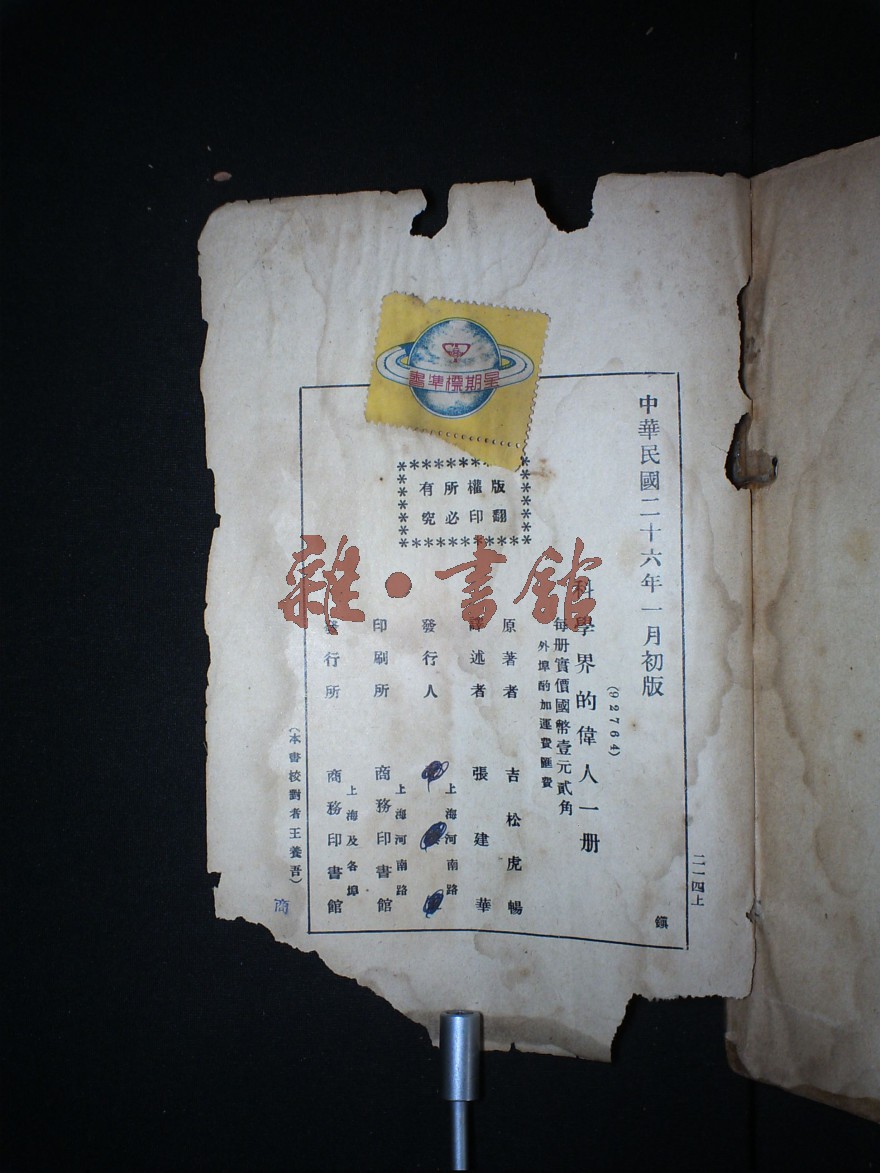 二一四上
中華民國二十六年一月初版
(92764)
科學界的偉人一册
每册實價國幣壹元貳角
外埠酌加運費匯費
原著者 吉松虎暢
譯述者 張建華
發行人
上海河南路
印刷所 商務印書館
上海河南路
發行所 商務印書館
上海及各埠
版權所有
翻印必究
星期標準書
(本書校對者王養吾)
商
雜·書館